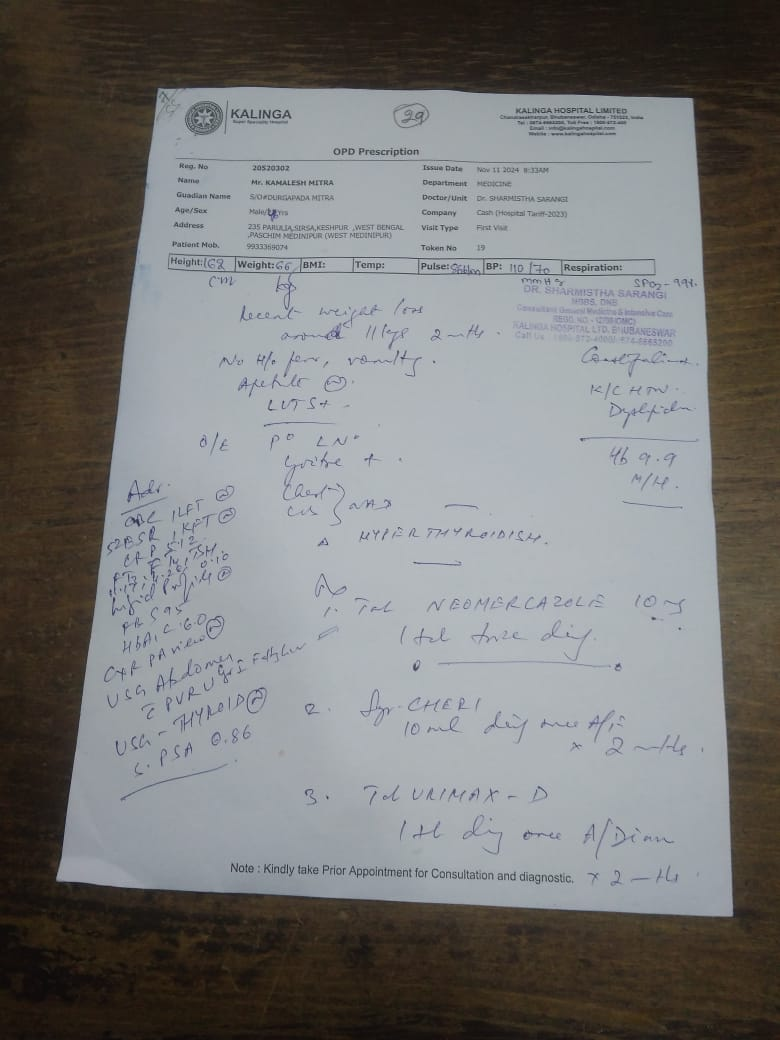 29
KALINGA
Super Speciality Hospital
KALINGA HOSPITAL LIMITED
Chandrasekharpur, Bhubaneswar, Odisha - 751023, India
Email : info@kalingahospital.com
Website : www.kalingahospital.com
OPD Prescription
Reg. No 20520302 Issue Date Nov 11 2024 8:33AM
Name Mr. KAMALESH MITRA Department MEDICINE
Guadian Name S/O#DURGAPADA MITRA Doctor/Unit Dr. SHARMISTHA SARANGI
Age/Sex Male/ Yrs Company Cash (Hospital Tariff-2023)
Address 235 PARULIA,SIRSA,KESHPUR ,WEST BENGAL Visit Type First Visit
,PASCHIM MEDINIPUR (WEST MEDINIPUR)
Patient Mob. 9933369074 Token No 19
Height: 162 Weight: 66 BMI: Temp: Pulse: BP: 110/70 Respiration:
cm kg mmHg SPO2-99%
DR. SHARMISTHA SARANGI
MBBS, DNB
Consultant General Medicine & Intensive Care
KALINGA HOSPITAL LTD, BHUBANESWAR
Recent weight loss
around 11 kgs 2 mths.
No H/o fever, vomiting.
Apetite
LUTS+
Constipation
K/C HTN
Dyslipidemia
O/E P° LN°
Goitre +
Chest
CVS } NAD
Hb 9.9
Δ HYPERTHYROIDISM.
Adv.
CBC LFT
52 ESR KFT
CRP 5.12
FT3, FT4, TSH
0.10
Lipid Profile
FBS 95
HbA1C 6.0
CXR PA view
USG Abdomen
c̄ PVRU
USG - THYROID
S. PSA 0.86
Rx
1. Tab NEOMERCAZOLE 10 mg
1 tab
2. Syr. CHERI
10 ml daily once
x 2 mths.
3. Tab URIMAX - D
1 tab daily once A/Dinner
x 2 mths
Note : Kindly take Prior Appointment for Consultation and diagnostic.